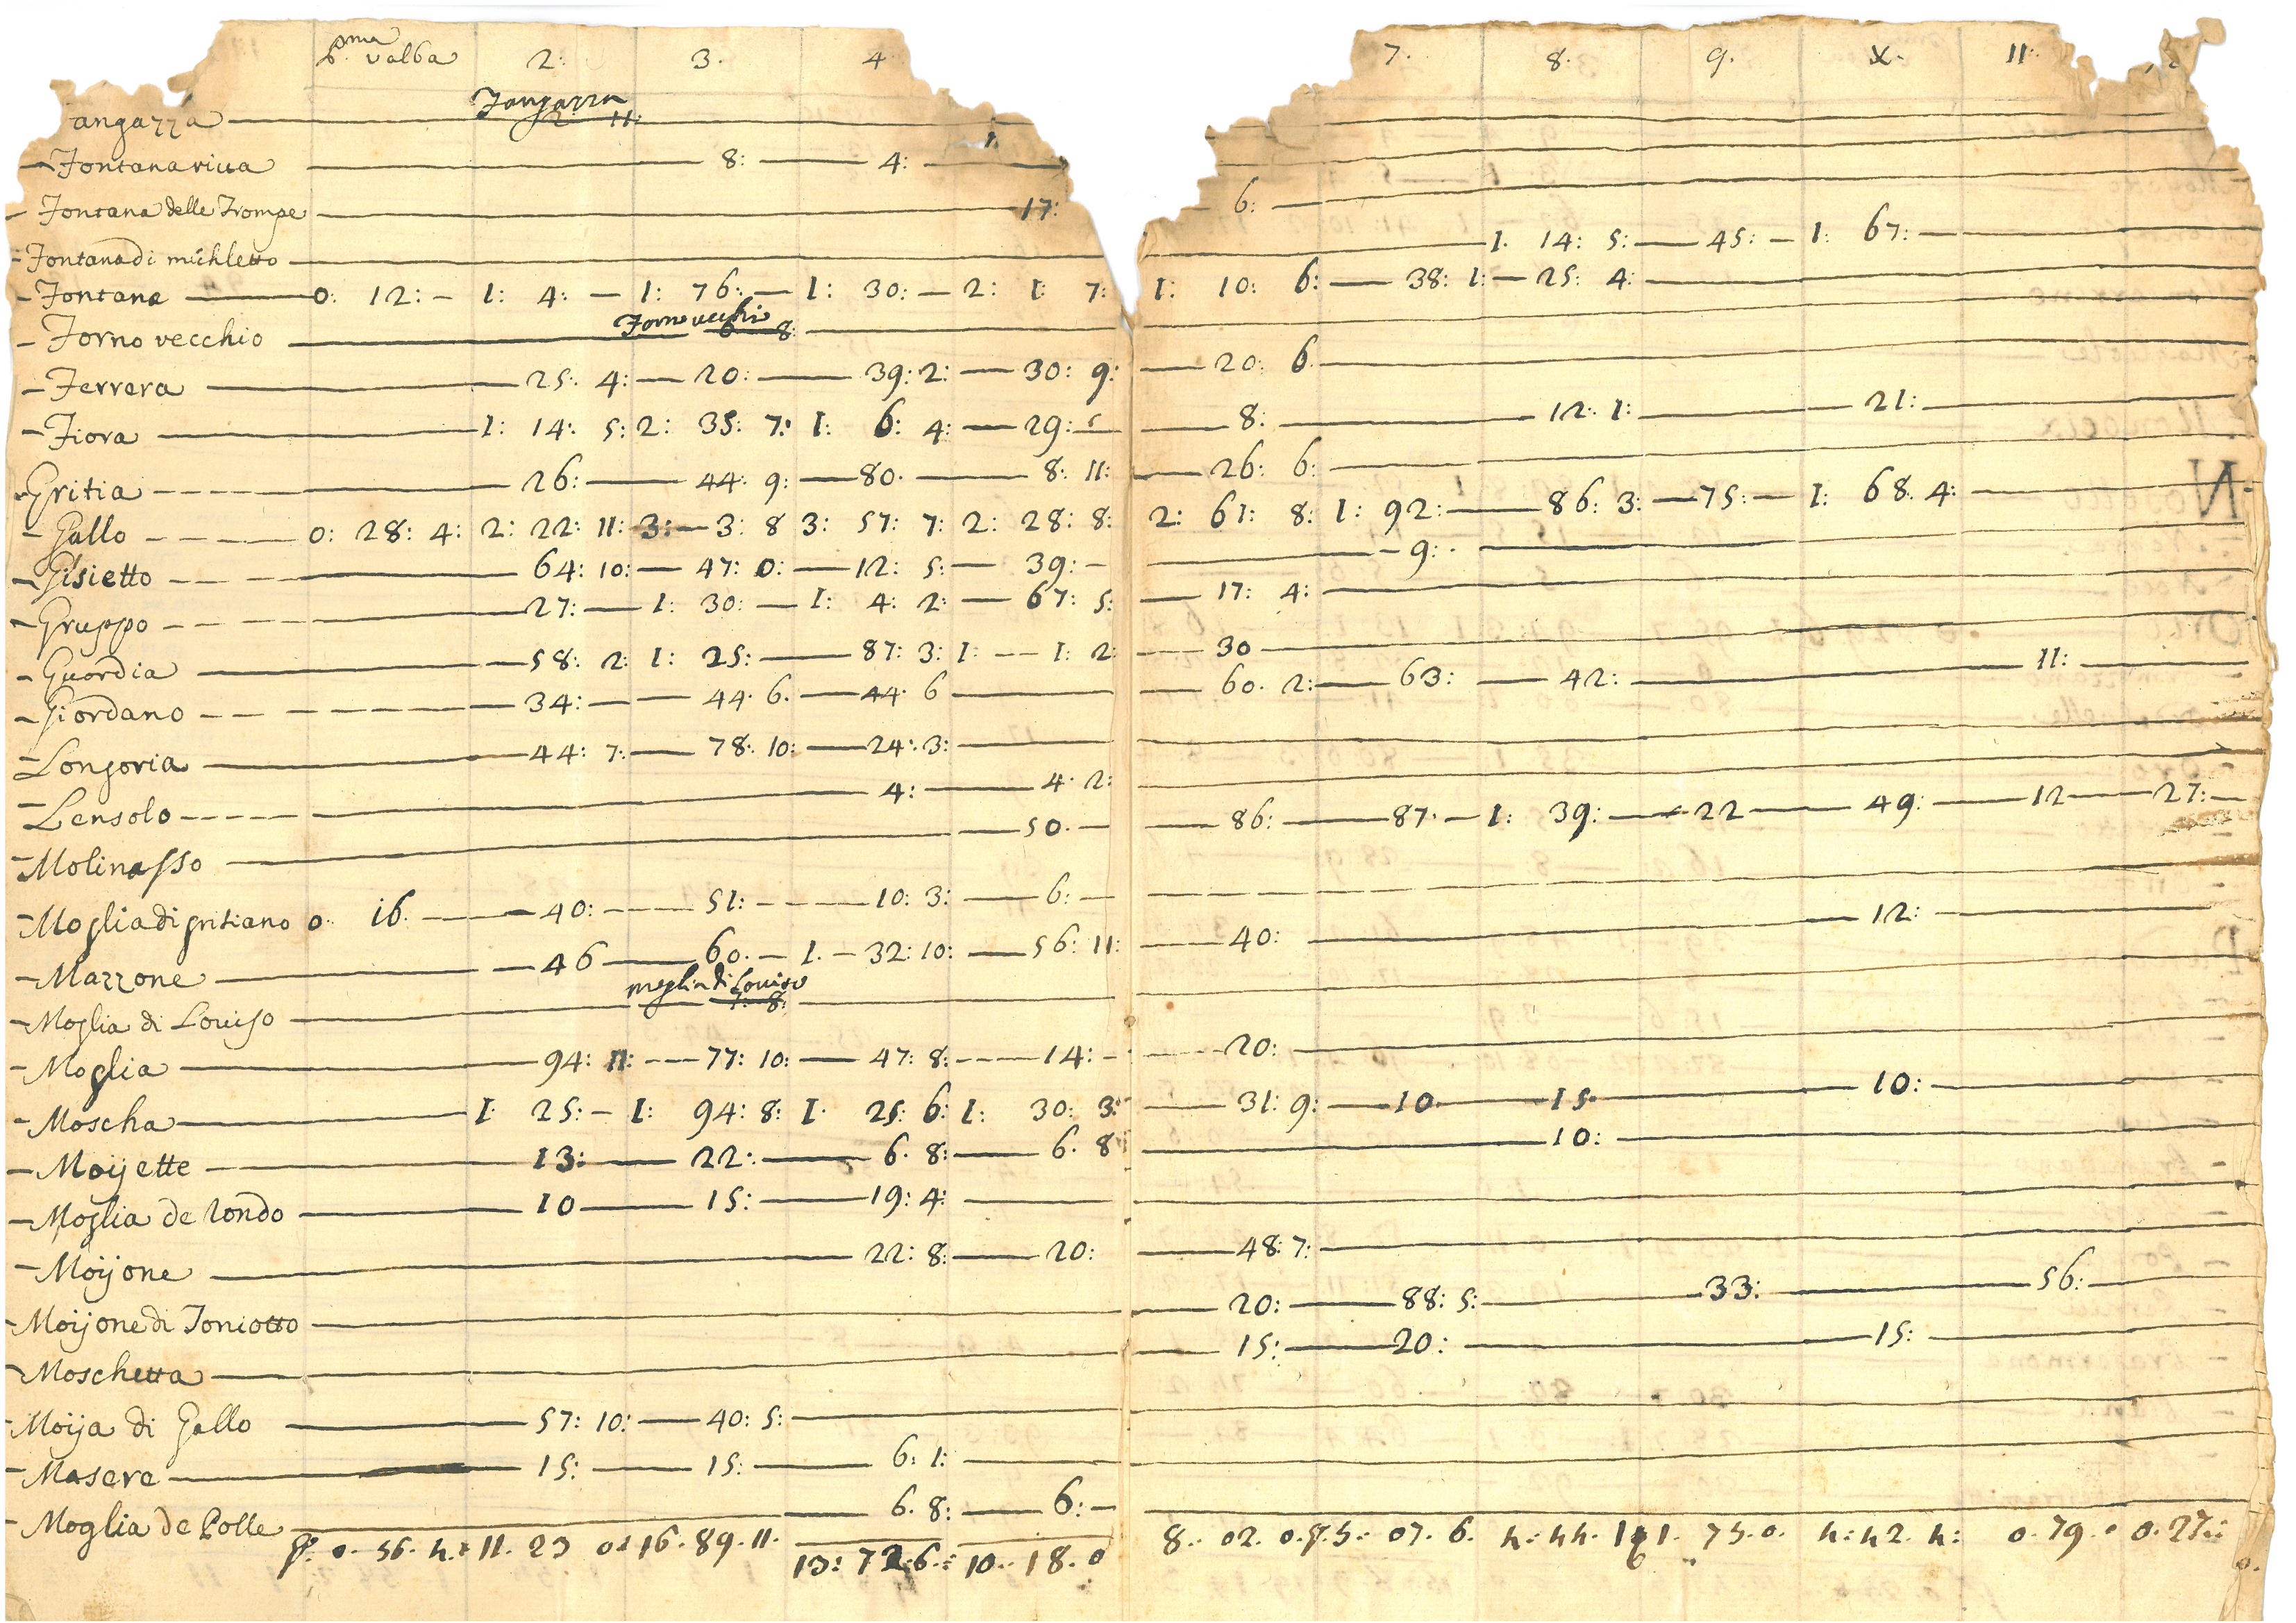 p.ma valba 2: 3. 4 7. 8. 9. X. 11:
angazza 11:
Fontana viva 8: 4:
- Fontana delle Trompe 17: 6:
- Fontana di michletto 1. 14: 5: 45: 1: 67:
- Fontana 0: 12: 1: 4: 1: 76: 1: 30: 2: 1: 7: 1: 10: 6: 38: 1: 25: 4:
Forno vecchio
- Forno vecchio 8:
- Ferrera 25: 4: 20: 39: 2: 30: 9: 20: 6.
- Fiora 1: 14: 5: 2: 35: 7: 1: 6: 4: 29: 8: 12: 1: 21:
- Gritia 26: 44: 9: 80. 8: 11: 26: 6:
- Gallo 0: 28: 4: 2: 22: 11: 3: 3: 8 3: 57: 7: 2: 28: 8: 2: 61: 8: 1: 92: 86: 3: 75: 1: 68. 4:
- Gisietto 64: 10: 47: 0: 12: 5: 39: 9:
- Gruppo 27: 1: 30: 1: 4: 2: 67: 5: 17: 4:
- Guardia 58: 2: 1: 25: 87: 3: 1: 1: 2: 30
- Giordano 34: 44. 6. 44. 6 60. 2: 63: 42: 11:
- Longoria 44: 7: 78: 10: 24: 3:
- Lensolo 4: 4. 2:
- Molinasso 50. 86: 87. 1: 39: 22 49: 12 27:
- Moglia di gritiano 0. 16. 40: 51: 10: 3: 6:
- Mazzone 46 60. 1. 32: 10: 56: 11: 40: 12:
moglia di Louiso
- Moglia di Louiso 8:
- Moglia 94: 11: 77: 10: 47: 8: 14: 20:
- Moscha 1: 25: 1: 94: 8: 1. 25: 6: 1: 30: 3: 31: 9: 10 15 10:
- Moijette 13: 22: 6. 8: 6. 8 10:
- Moglia de rondo 10 15: 19: 4:
- Moijone 22: 8: 20: 48: 7:
- Moijone di Toniotto 20: 88: 5: 33: 56:
- Moschetta 15: 20: 15:
- Moija di Gallo 57: 10: 40: 5:
- Masere 15: 15: 6: 1:
- Moglia de Polle 6. 8: 6:
0. 56. 4. 11. 23 16. 89. 11. 13: 72: 6: 10. 18. 0 8. 02. 0. 5. 07. 6. 4: 44. 1. 75. 0. 4: 42. 4: 0. 79. 0. 27: